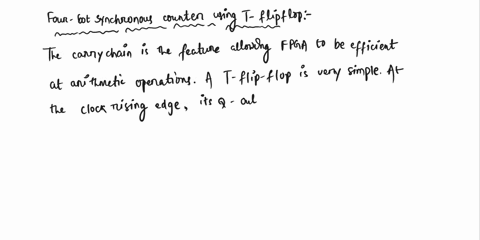 Four-bot synchronous counter using T-flipflop:-
The carrychain is the feature allowing FPGA to be efficient
at arithmetic operations. A T-flip-flop is very simple. At
the clock rising edge, its Q-out